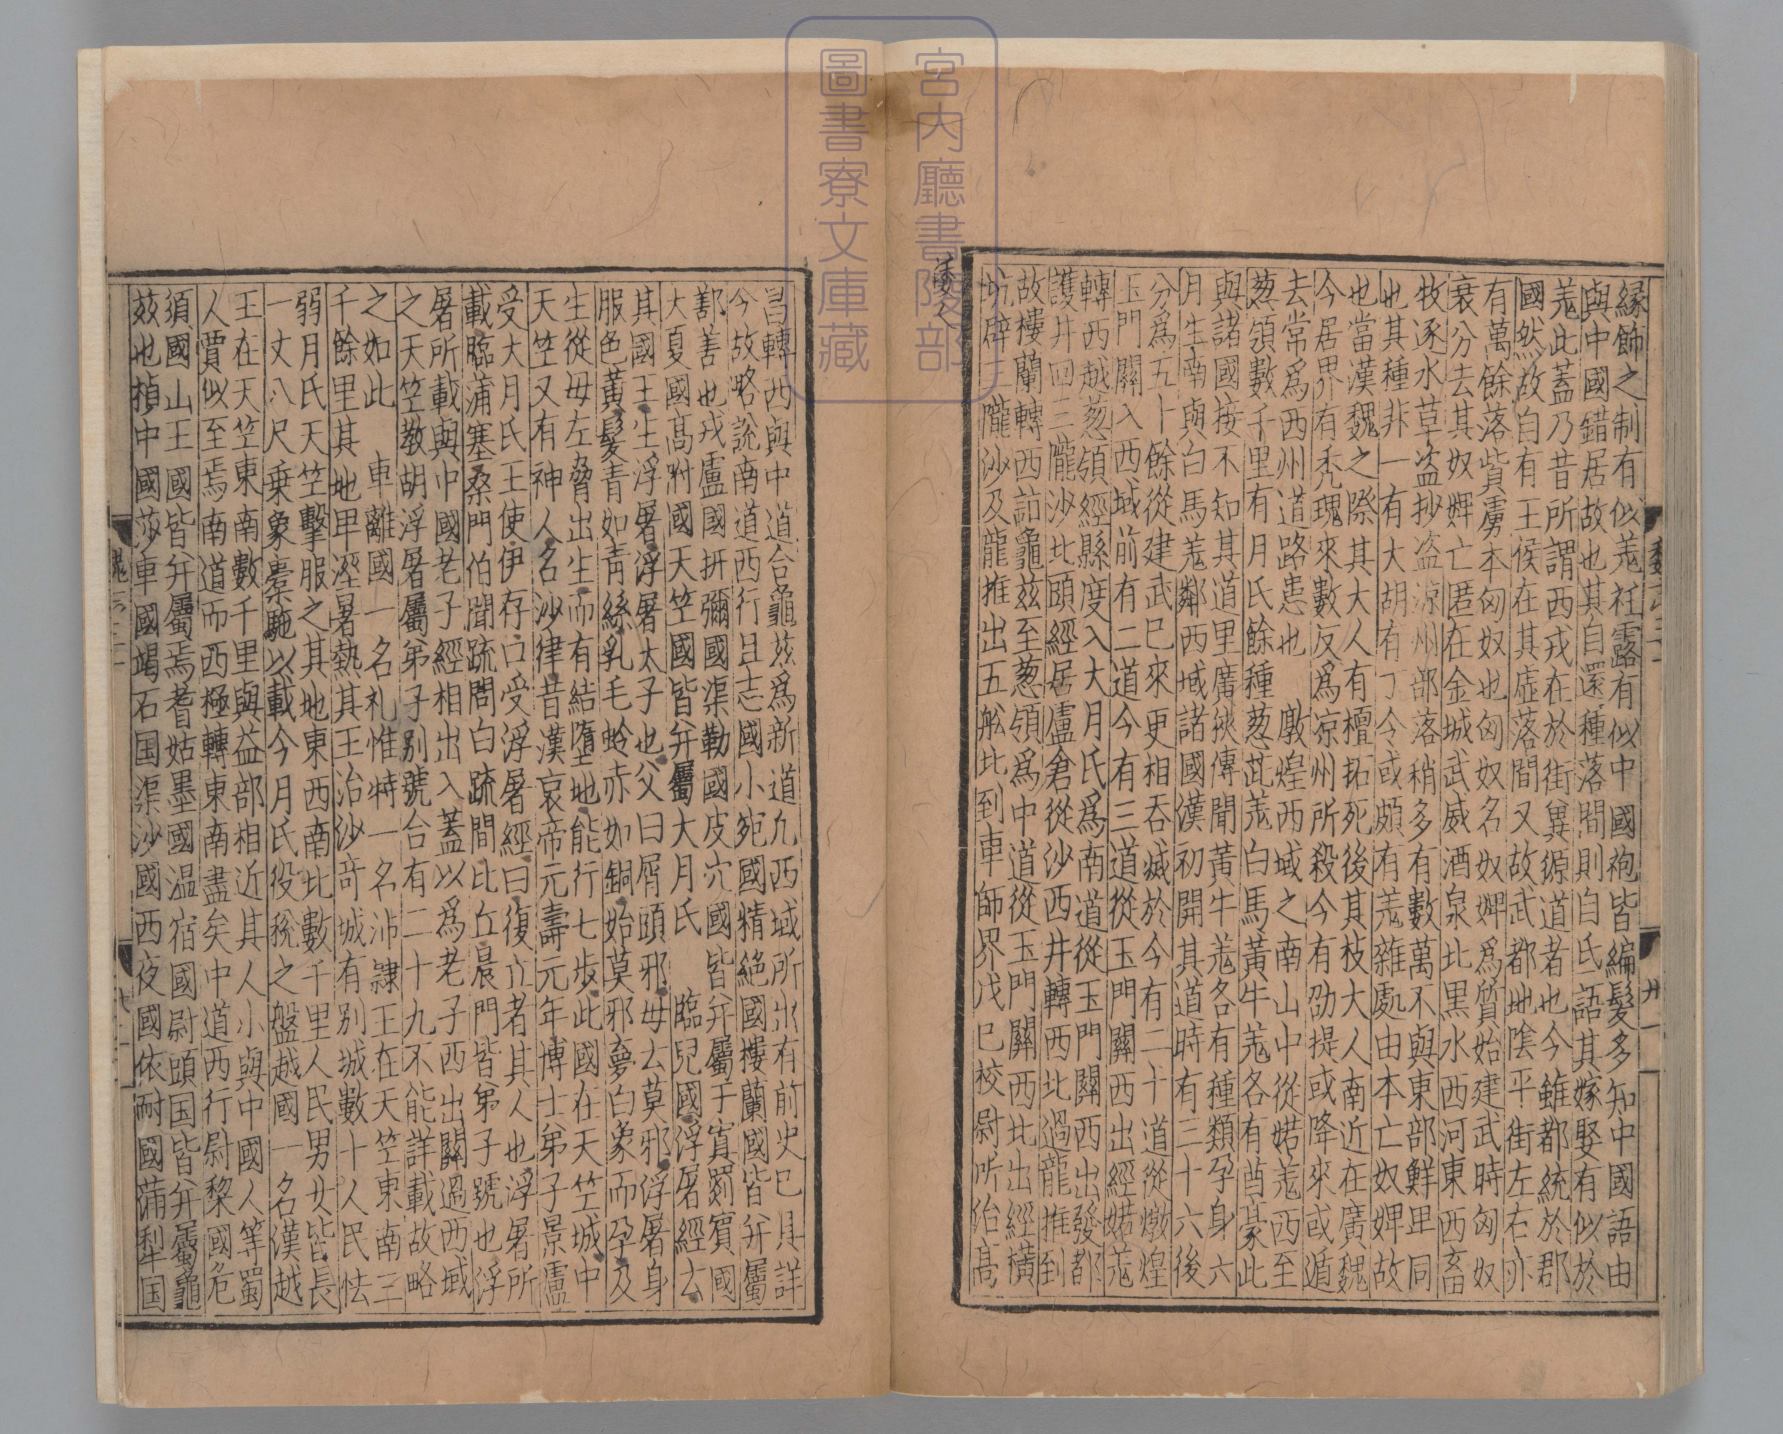 緣飾之制有似羌衽露有似中國袍皆編髮多知中國語由
與中國錯居故也其自還種落間則自氐語其嫁娶有似於
羌此蓋乃昔所謂西戎在於街冀源道者也今雖都統於郡
國然故自有王侯在其虛落間又故武都地陰平街左右亦
有萬餘落貲虜本匈奴也匈奴名奴婢為貲始建武時匈奴
衰分去其奴婢亡匿在金城武威酒泉北黑水西河東西畜
牧逐水草盗抄凉州部落稍多有數萬不與東部鮮卑同
也其種非一有大胡有丁令或頗有羌雜處由本亡奴婢故
也當漢魏之際其大人有檀柘死後其枝大人南近在廣魏
今居界有禿瑰來數反為凉州所殺今有劭提或降來或遁
去常為西州道路患也　燉煌西域之南山中從婼羌西至
葱領數千里有月氏餘種葱茈羌白馬黃牛羌各有酋豪此
與諸國接不知其道里廣狹傳聞黃牛羌各有種類孕身六
月生南與白馬羌鄰西域諸國漢初開其道時有三十六後
分為五十餘從建武已來更相吞滅於今有二十道從燉煌
玉門關入西域前有二道今有三道從玉門關西出經婼羌
轉西越葱領經縣度入大月氏為南道從玉門關西出發都
護井回三隴沙北頭經居盧倉從沙西井轉西北過龍堆到
故樓蘭轉西詣龜兹至葱領為中道從玉門關西北出經橫
坑辟三隴沙及龍堆出五舩北到車師界戊巳校尉所治高
昌轉西與中道合龜茲為新道九西域所出有前史已具詳
今故略說南道西行且志國小宛國精絕國樓蘭國皆并屬
鄯善也戎盧國扜彌國渠勒國皮穴國皆并屬于寘罽賔國
大夏國髙附國天竺國皆并屬大月氏　臨兒國浮屠經云
其國王生浮屠浮屠太子也父曰屑頭邪母云莫邪浮屠身
服色黃髮青如青絲乳毛蛉赤如銅始莫邪夢白象而孕及
生從母左脅出生而有結墮地能行七步此國在天竺城中
天竺又有神人名沙律昔漢哀帝元壽元年博士弟子景盧
受大月氏王使伊存口受浮屠經曰復立者其人也浮屠所
載臨蒲塞桑門伯聞疏問白疏間比丘晨門皆弟子號也浮
屠所載與中國老子經相出入蓋以為老子西出關過西域
之天竺教胡浮屠屬弟子别號合有二十九不能詳載故略
之如此　車離國一名礼惟特一名沛隷王在天竺東南三
千餘里其地卑溼暑熱其王治沙奇城有别城數十人民怯
弱月氏天竺擊服之其地東西南北數千里人民男女皆長
一丈八尺乘象橐駞以載今月氏役稅之盤越國一名漢越
王在天竺東南數千里與益部相近其人小與中國人等蜀
人賈似至焉南道而西極轉東南盡矣中道西行尉黎國危
須國山王國皆并屬焉耆姑墨國温宿國尉頭国皆并屬龜
兹也楨中國莎車國竭石国渠沙國西夜國依耐國蒲犁国
宮內廳書陵部
圖書寮文庫藏